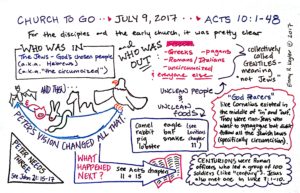 CHURCH TO GO ... JULY 9, 2017 ... ACTS 10:1-48
For the disciples and the early church, it was pretty clear
WHO WAS IN
The Jews - God's chosen people
(a.k.a. Hebrews)
(a.k.a. "the circumcised")
and WHO WAS OUT
- Greeks - pagans
- Romans/Italians
- uncircumcised
- everyone else
collectively called
GENTILES -
meaning
"not Jews"
AND THEN!
PETER'S VISION CHANGED ALL THAT
UNCLEAN PEOPLE
&
UNCLEAN
foods
camel eagle
rabbit bat
pig snake
lobster
see
Leviticus
chapter
11
"God Fearers"
like Cornelius existed in
the middle of "in" and "out".
They were non-Jews who
went to synagogue but didn't
follow all the Jewish laws
(specifically circumcision)
PETER NEEDS
THINGS
See John 21:15-17
WHAT
HAPPENED
NEXT?
See Acts chapters
11 + 15
CENTURIONS were Roman
officers, who led a group of 100
soldiers (like "century"). Jesus
also met one in Luke 7:1-10.